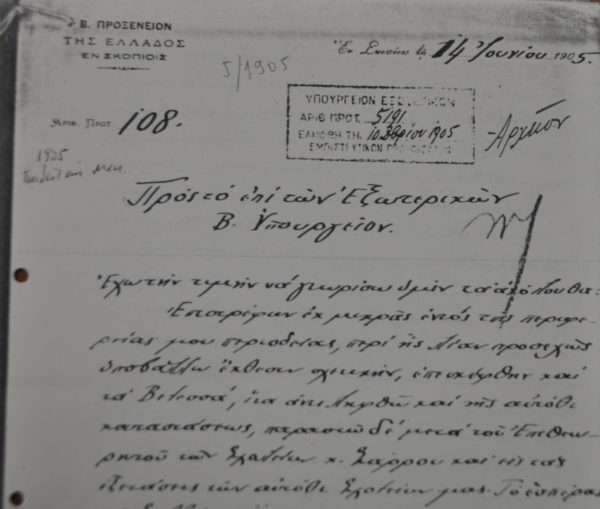 Β. ΠΡΟΞΕΝΕΙΟΝ
ΤΗΣ ΕΛΛΑΔΟΣ
ΕΝ ΣΚΟΠΙΟΙΣ
Ἐν Σκοπίοις τῇ 14 Ἰουνίου 1905.
5/1905
ΥΠΟΥΡΓΕΙΟΝ ΕΞΩΤΕΡΙΚΩΝ
ΑΡΙΘ ΠΡΩΤ. 5191
ΕΛΗΦΘΗ ΤΗ. 1905
ΕΜΠΙΣΤΕΥΤΙΚΟΝ ΠΡΩΤΟΚΟΛΛΟΝ
Ἀρχεῖον
Ἀριθ. Πρωτ. 108.
1905
Πρὸς τὸ ἐπὶ τῶν Ἐξωτερικῶν
Β. Ὑπουργεῖον.
Ἔχω τὴν τιμὴν νὰ γνωρίσω ὑμῖν τὰ ἀκόλουθα:
Ἐπιστρέφων ἐκ μικρᾶς ἐντὸς τῆς περιφε-
ρείας μου περιοδείας, περὶ ἧς λίαν προσεχῶς
ὑποβάλλω ἔκθεσιν σχετικήν, ἐπεσκέφθην καὶ
τὰ Βελεσσά, ἵνα ἀντιληφθῶ καὶ τῆς αὐτόθι
καταστάσεως, παραστῶ δὲ μετὰ τοῦ Ἐπιθεω-
ρητοῦ τῶν Σχολείων κ. Σάρρου καὶ εἰς τὰς
ἐξετάσεις τῶν αὐτόθι Σχολείων μας. Τὸ ἑσπέρας